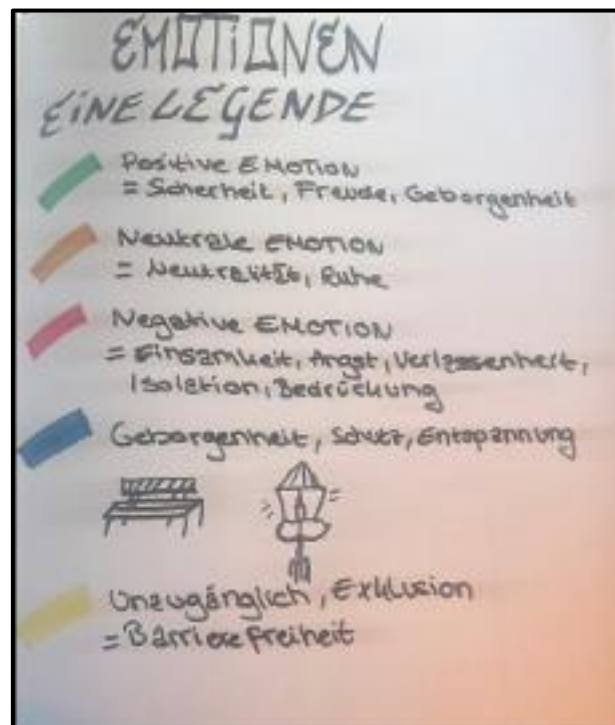 EMOTIONEN
EINE LEGENDE
Positive EMOTION
= Sicherheit, Freude, Geborgenheit
Neutrale EMOTION
= Neutralität, Ruhe
Negative EMOTION
= Einsamkeit, Angst, Verlassenheit,
Isolation, Bedrückung
Geborgenheit, Schutz, Entspannung
Unzugänglich, Exklusion
= Barrierefreiheit